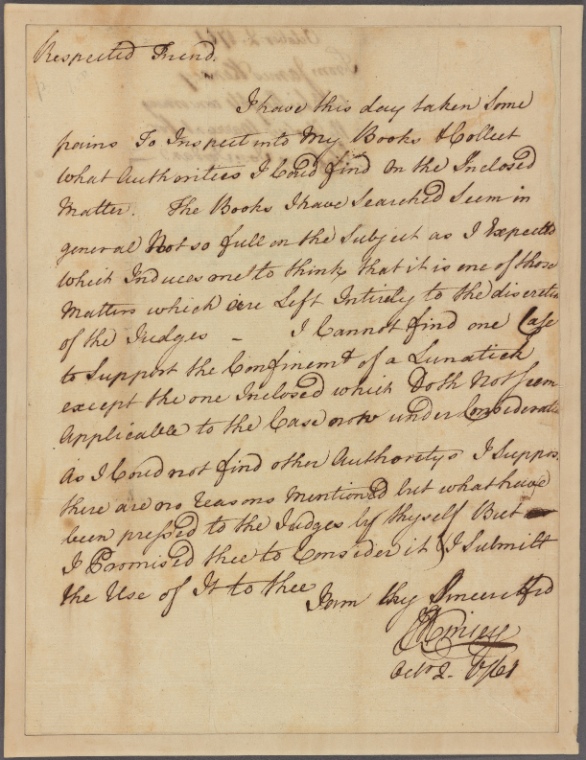 Respected Friend.
I have this day taken Some
pains To Inspect into My Books & Collect
what Authorities I Could find on the Inclosed
Matter. The Books I have Searched Seem in
general Not so full on the Subject as I Expected
which Induces me to think that it is one of those
Matters which are Left Intirely to the discretion
of the Judges – I Cannot find one Case
to Support the Confinemt of a Lunatick
except the one Inclosed which Doth Not Seem
Applicable to the Case now under Consideratn
As I Could not find other Authoritys I Suppose
there are no reasons Mentioned but what have
been pressed to the Judges by thyself But
I Promised thee to Consider it I Submitt
the Use of It to thee
I am thy Sincere ffrd
J Kinsey
Octr 2. 1761